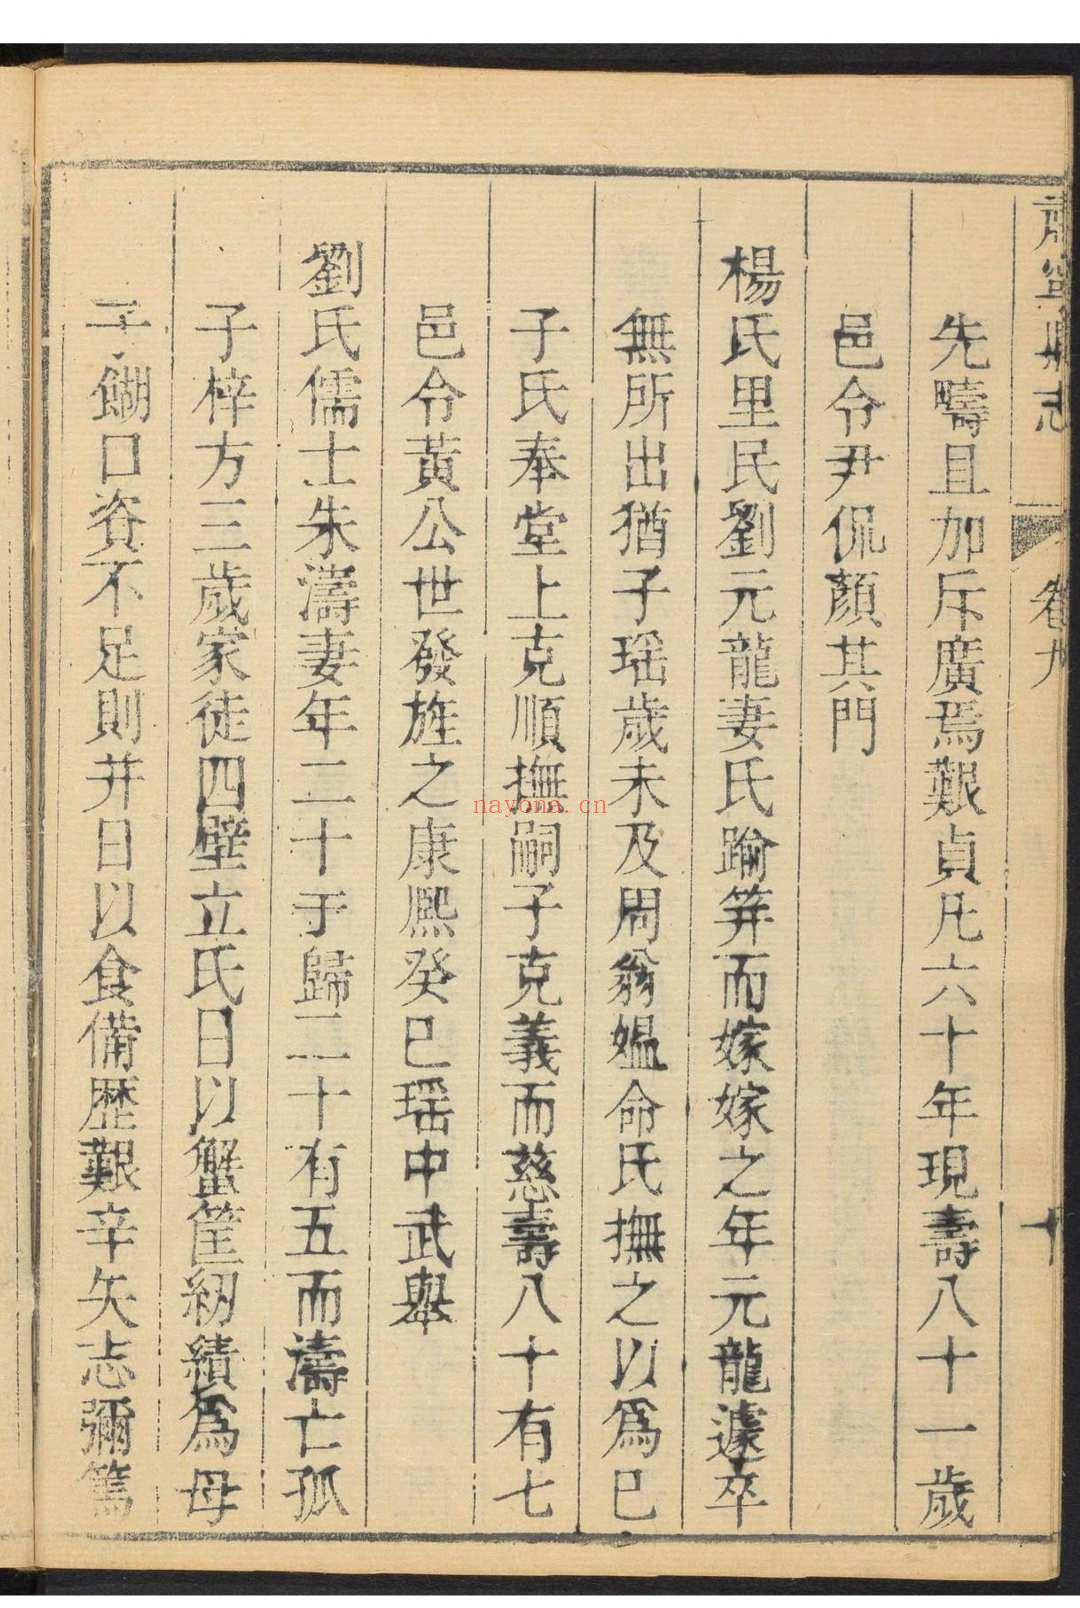 肅寧縣志 卷九 十
先疇且加斥廣焉艱貞凡六十年現壽八十一歲
邑令尹侃顏其門
楊氏里民劉元龍妻氏踰笄而嫁嫁之年元龍遽卒
無所出猶子瑶歲未及周翁媼命氏撫之以爲已
子氏奉堂上克順撫嗣子克義而慈壽八十有七
邑令黃公世發旌之康熙癸巳瑶中武舉
劉氏儒士朱濤妻年二十于歸二十有五而濤亡孤
子梓方三歲家徒四壁立氏日以蟹筐紉績爲母
子餬口資不足則并日以食備歴艱辛矢志彌篤
nayona.cn